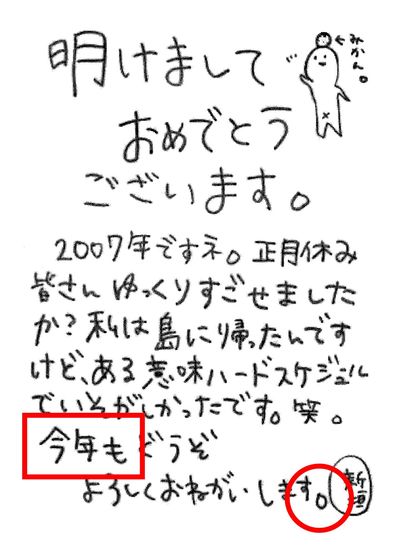 明けまして
おめでとう
ございます。
←みかん。
2007年ですネ。正月休み
皆さんゆっくりすごせました
か?私は島に帰ったんです
けど、ある意味ハードスケジュール
でいそがしかったです。笑。
今年もどうぞ
よろしくおねがいします。
新垣